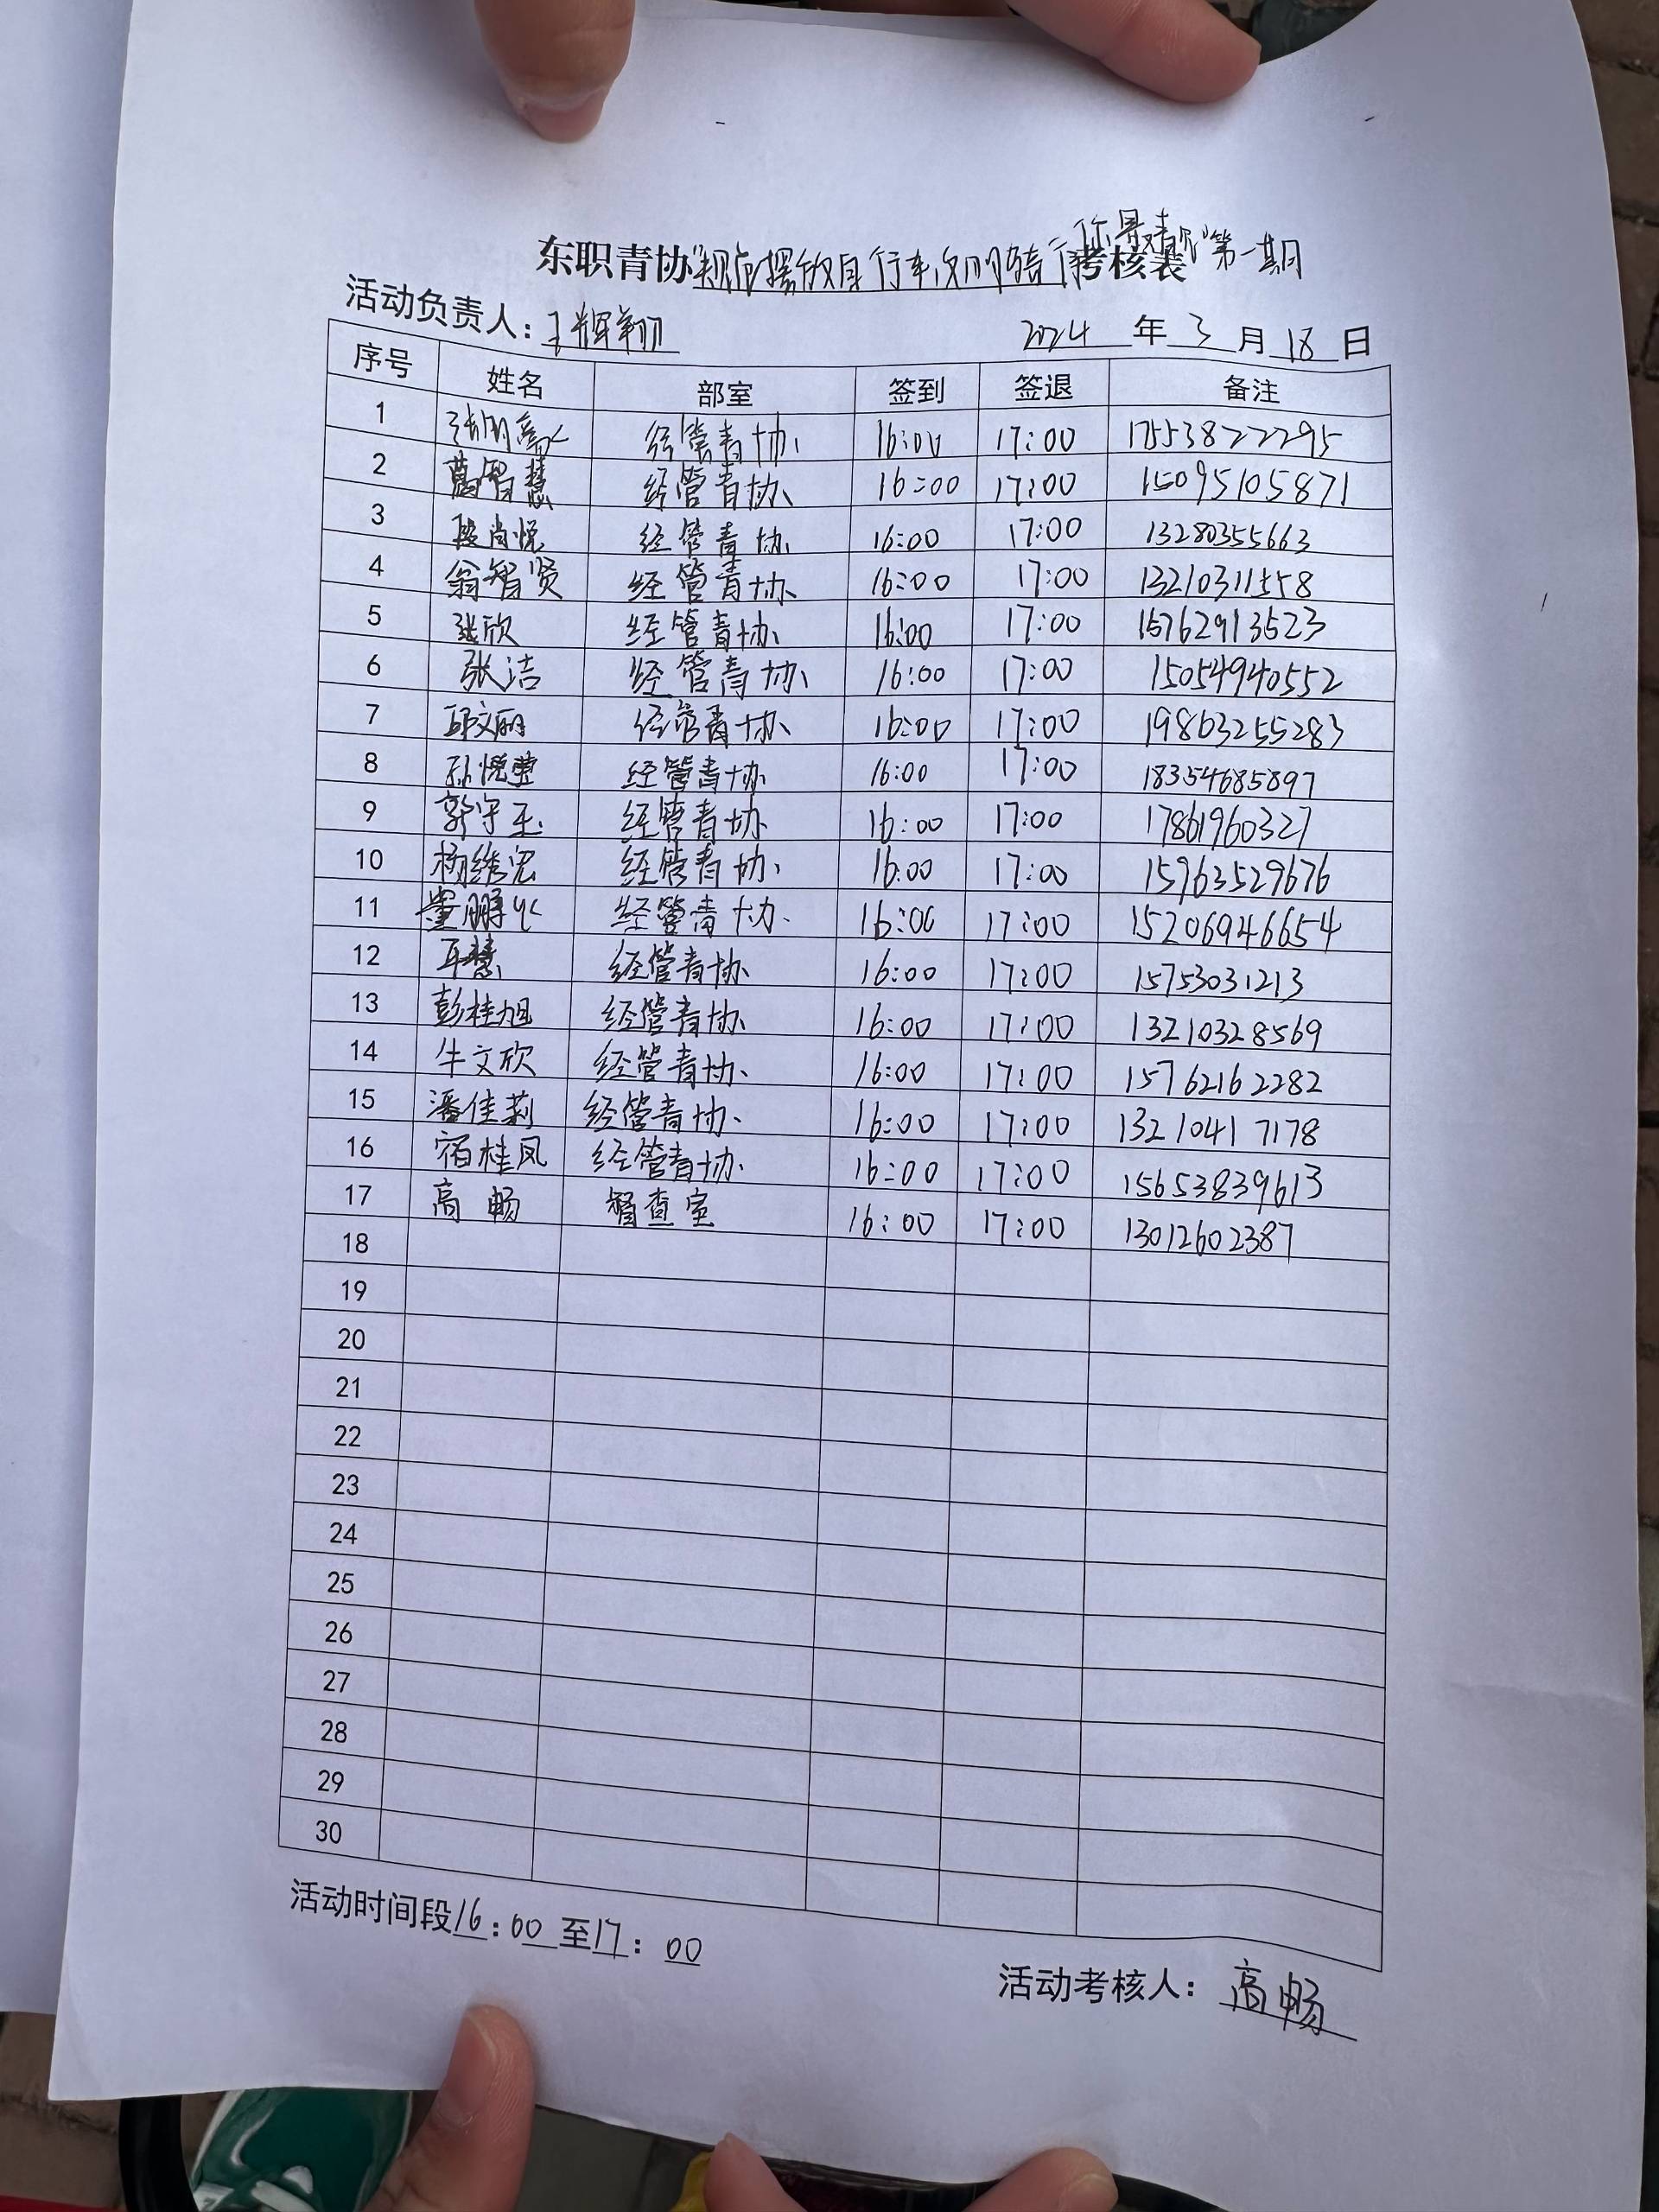 东职青协“规范摆放自行车文明骑行你最青春”第一期考核表
活动负责人：王辉翔 2024年3月18日
序号 姓名 部室 签到 签退 备注
1 经管青协 16:00 17:00 17553822295
2 葛智慧 经管青协 16:00 17:00 15095105871
3 段尚悦 经管青协 16:00 17:00 13280355663
4 翁智贤 经管青协 16:00 17:00 13210311558
5 张欣 经管青协 16:00 17:00 15762913523
6 张洁 经管青协 16:00 17:00 15054940552
7 邱文丽 经管青协 16:00 17:00 19863255283
8 孙悦 经管青协 16:00 17:00 18354685897
9 郭守玉 经管青协 16:00 17:00 17861960327
10 杨维宏 经管青协 16:00 17:00 15963529676
11 董鹏 经管青协 16:00 17:00 15206946654
12 慧 经管青协 16:00 17:00 15753031213
13 彭桂旭 经管青协 16:00 17:00 13210328569
14 牛文欣 经管青协 16:00 17:00 15762162282
15 潘佳莉 经管青协 16:00 17:00 13210417178
16 宿桂凤 经管青协 16:00 17:00 15653839613
17 高畅 督查室 16:00 17:00 13012602387
18
19
20
21
22
23
24
25
26
27
28
29
30
活动时间段16:00至17:00
活动考核人：高畅